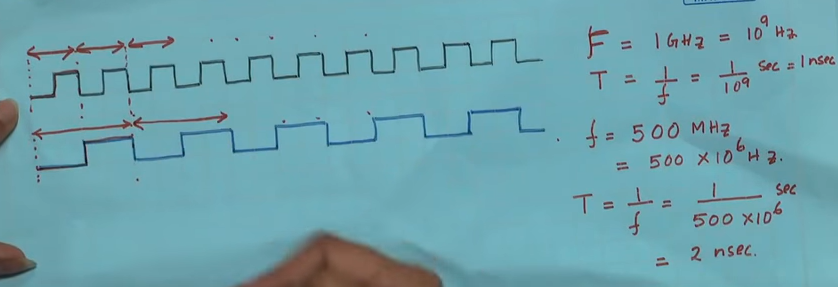 F = 1GHz = 10⁹ Hz
T = 1/f = 1/10⁹ sec = 1nsec
f = 500 MHz
= 500 × 10⁶ Hz.
T = 1/f = 1/500 × 10⁶ sec
= 2 nsec.